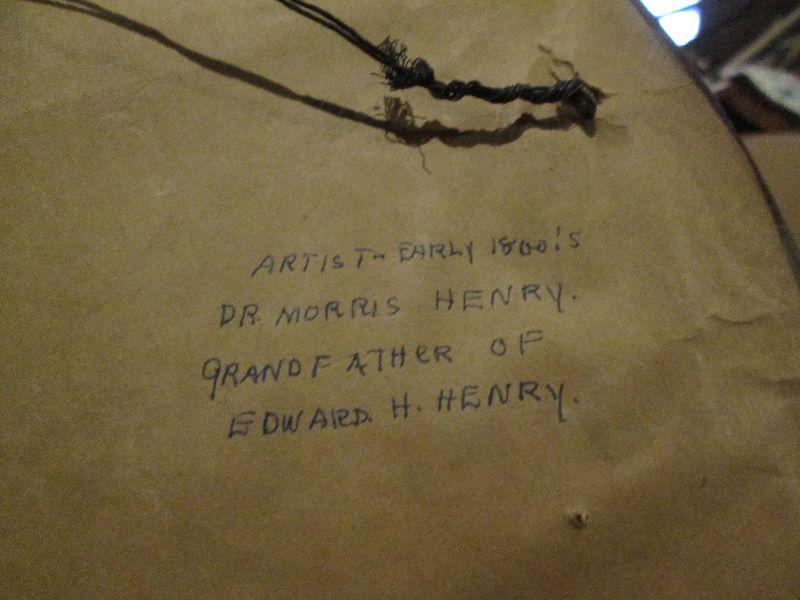 ARTIST - EARLY 1800's
DR. MORRIS HENRY.
GRANDFATHER OF
EDWARD. H. HENRY.